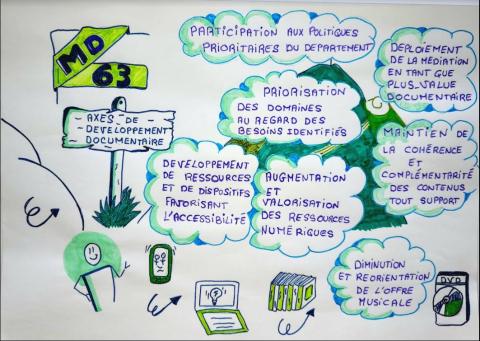 MD
63
- AXES - DE -
- DÉVELOPPEMENT
DOCUMENTAIRE
PARTICIPATION AUX POLITIQUES
PRIORITAIRES DU DÉPARTEMENT
DÉPLOIEMENT
DE LA MÉDIATION
EN TANT QUE
PLUS_VALUE
DOCUMENTAIRE
PRIORISATION
DES DOMAINES
AU REGARD DES
BESOINS IDENTIFIÉS
MAINTIEN DE
LA COHÉRENCE
ET
COMPLÉMENTARITÉ
DES CONTENUS
TOUT SUPPORT
DÉVELOPPEMENT
DE RESSOURCES
ET DE DISPOSITIFS
FAVORISANT
L'ACCESSIBILITÉ
AUGMENTATION
ET
VALORISATION
DES RESSOURCES
NUMÉRIQUES
DIMINUTION
ET RÉORIENTATION
DE L'OFFRE
MUSICALE
DVD